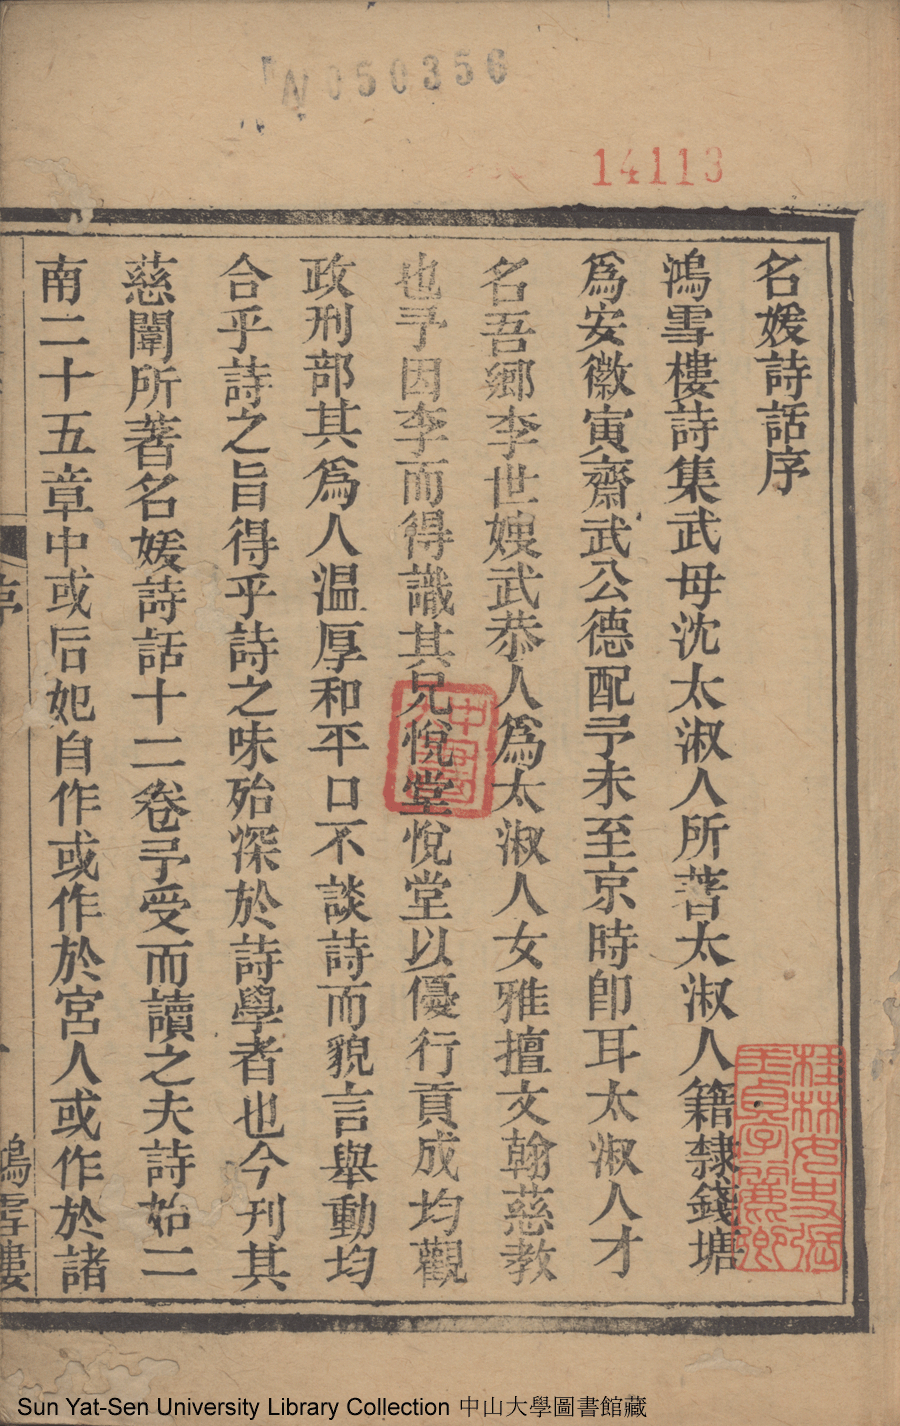 N 050356
14113
名媛詩話序
鴻雪樓詩集武母沈太淑人所著太淑人籍隸錢塘
爲安徽寅齋武公德配予未至京時卽耳太淑人才
名吾鄉李世嫂武恭人爲太淑人女雅擅文翰慈教
也予因李而得識其兄悅堂悅堂以優行貢成均觀
政刑部其爲人温厚和平口不談詩而貌言舉動均
合乎詩之旨得乎詩之味殆深於詩學者也今刊其
慈闈所著名媛詩話十二卷予受而讀之夫詩始二
南二十五章中或后妃自作或作於宮人或作於諸
序
鴻雪樓
Sun Yat-Sen University Library Collection 中山大學圖書館藏